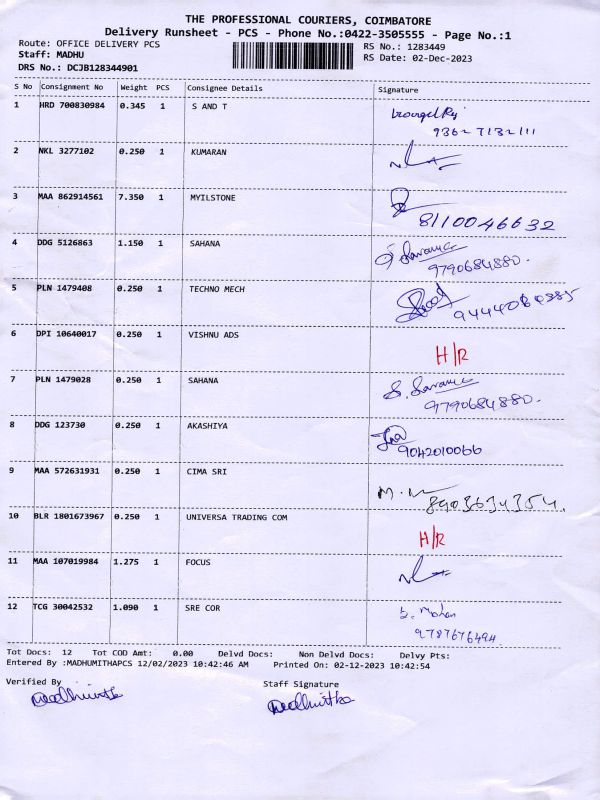 THE PROFESSIONAL COURIERS, COIMBATORE
Delivery Runsheet - PCS - Phone No.:0422-3505555 - Page No.:1
Route: OFFICE DELIVERY PCS RS No.: 1283449
Staff: MADHU RS Date: 02-Dec-2023
DRS No.: DCJB128344901
S No Consignment No Weight PCS Consignee Details Signature
1 HRD 700830984 0.345 1 S AND T
93627132111
2 NKL 3277102 0.250 1 KUMARAN
3 MAA 862914561 7.350 1 MYILSTONE
8110046632
4 DDG 5126863 1.150 1 SAHANA
9790684880.
5 PLN 1479408 0.250 1 TECHNO MECH
6 DPI 10640017 0.250 1 VISHNU ADS
H/R
7 PLN 1479028 0.250 1 SAHANA
9790684880.
8 DDG 123730 0.250 1 AKASHIYA
9042010066
9 MAA 572631931 0.250 1 CIMA SRI
8903634354.
10 BLR 1801673967 0.250 1 UNIVERSA TRADING COM
H/R
11 MAA 107019984 1.275 1 FOCUS
12 TCG 30042532 1.090 1 SRE COR
S. Mohan
9787676494.
Tot Docs: 12 Tot COD Amt: 0.00 Delvd Docs: Non Delvd Docs: Delvy Pts:
Entered By :MADHUMITHAPCS 12/02/2023 10:42:46 AM Printed On: 02-12-2023 10:42:54
Verified By Staff Signature
Madhumitha Madhumitha